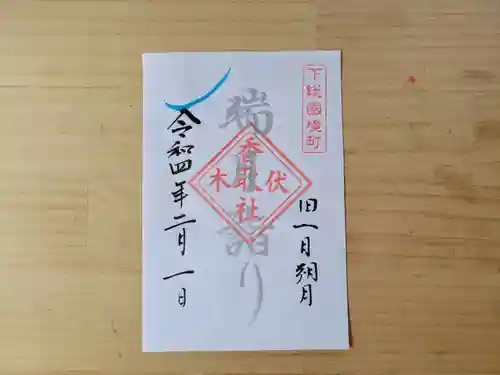 下総國境町
旧一月朔月
瑞月詣り
香取社
伏木
令和四年二月一日